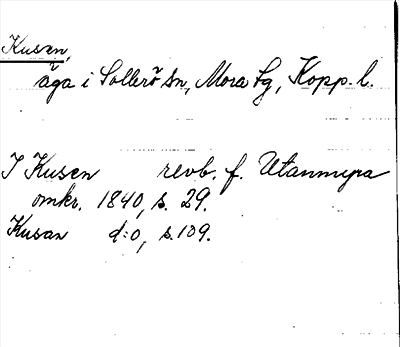 Kusen,
äga i Sollerö sn, Mora tg, Kopp. l.
I Kusen revb. f. Utanmyra
omkr. 1840, s. 29.
Kusan d:o, s. 109.